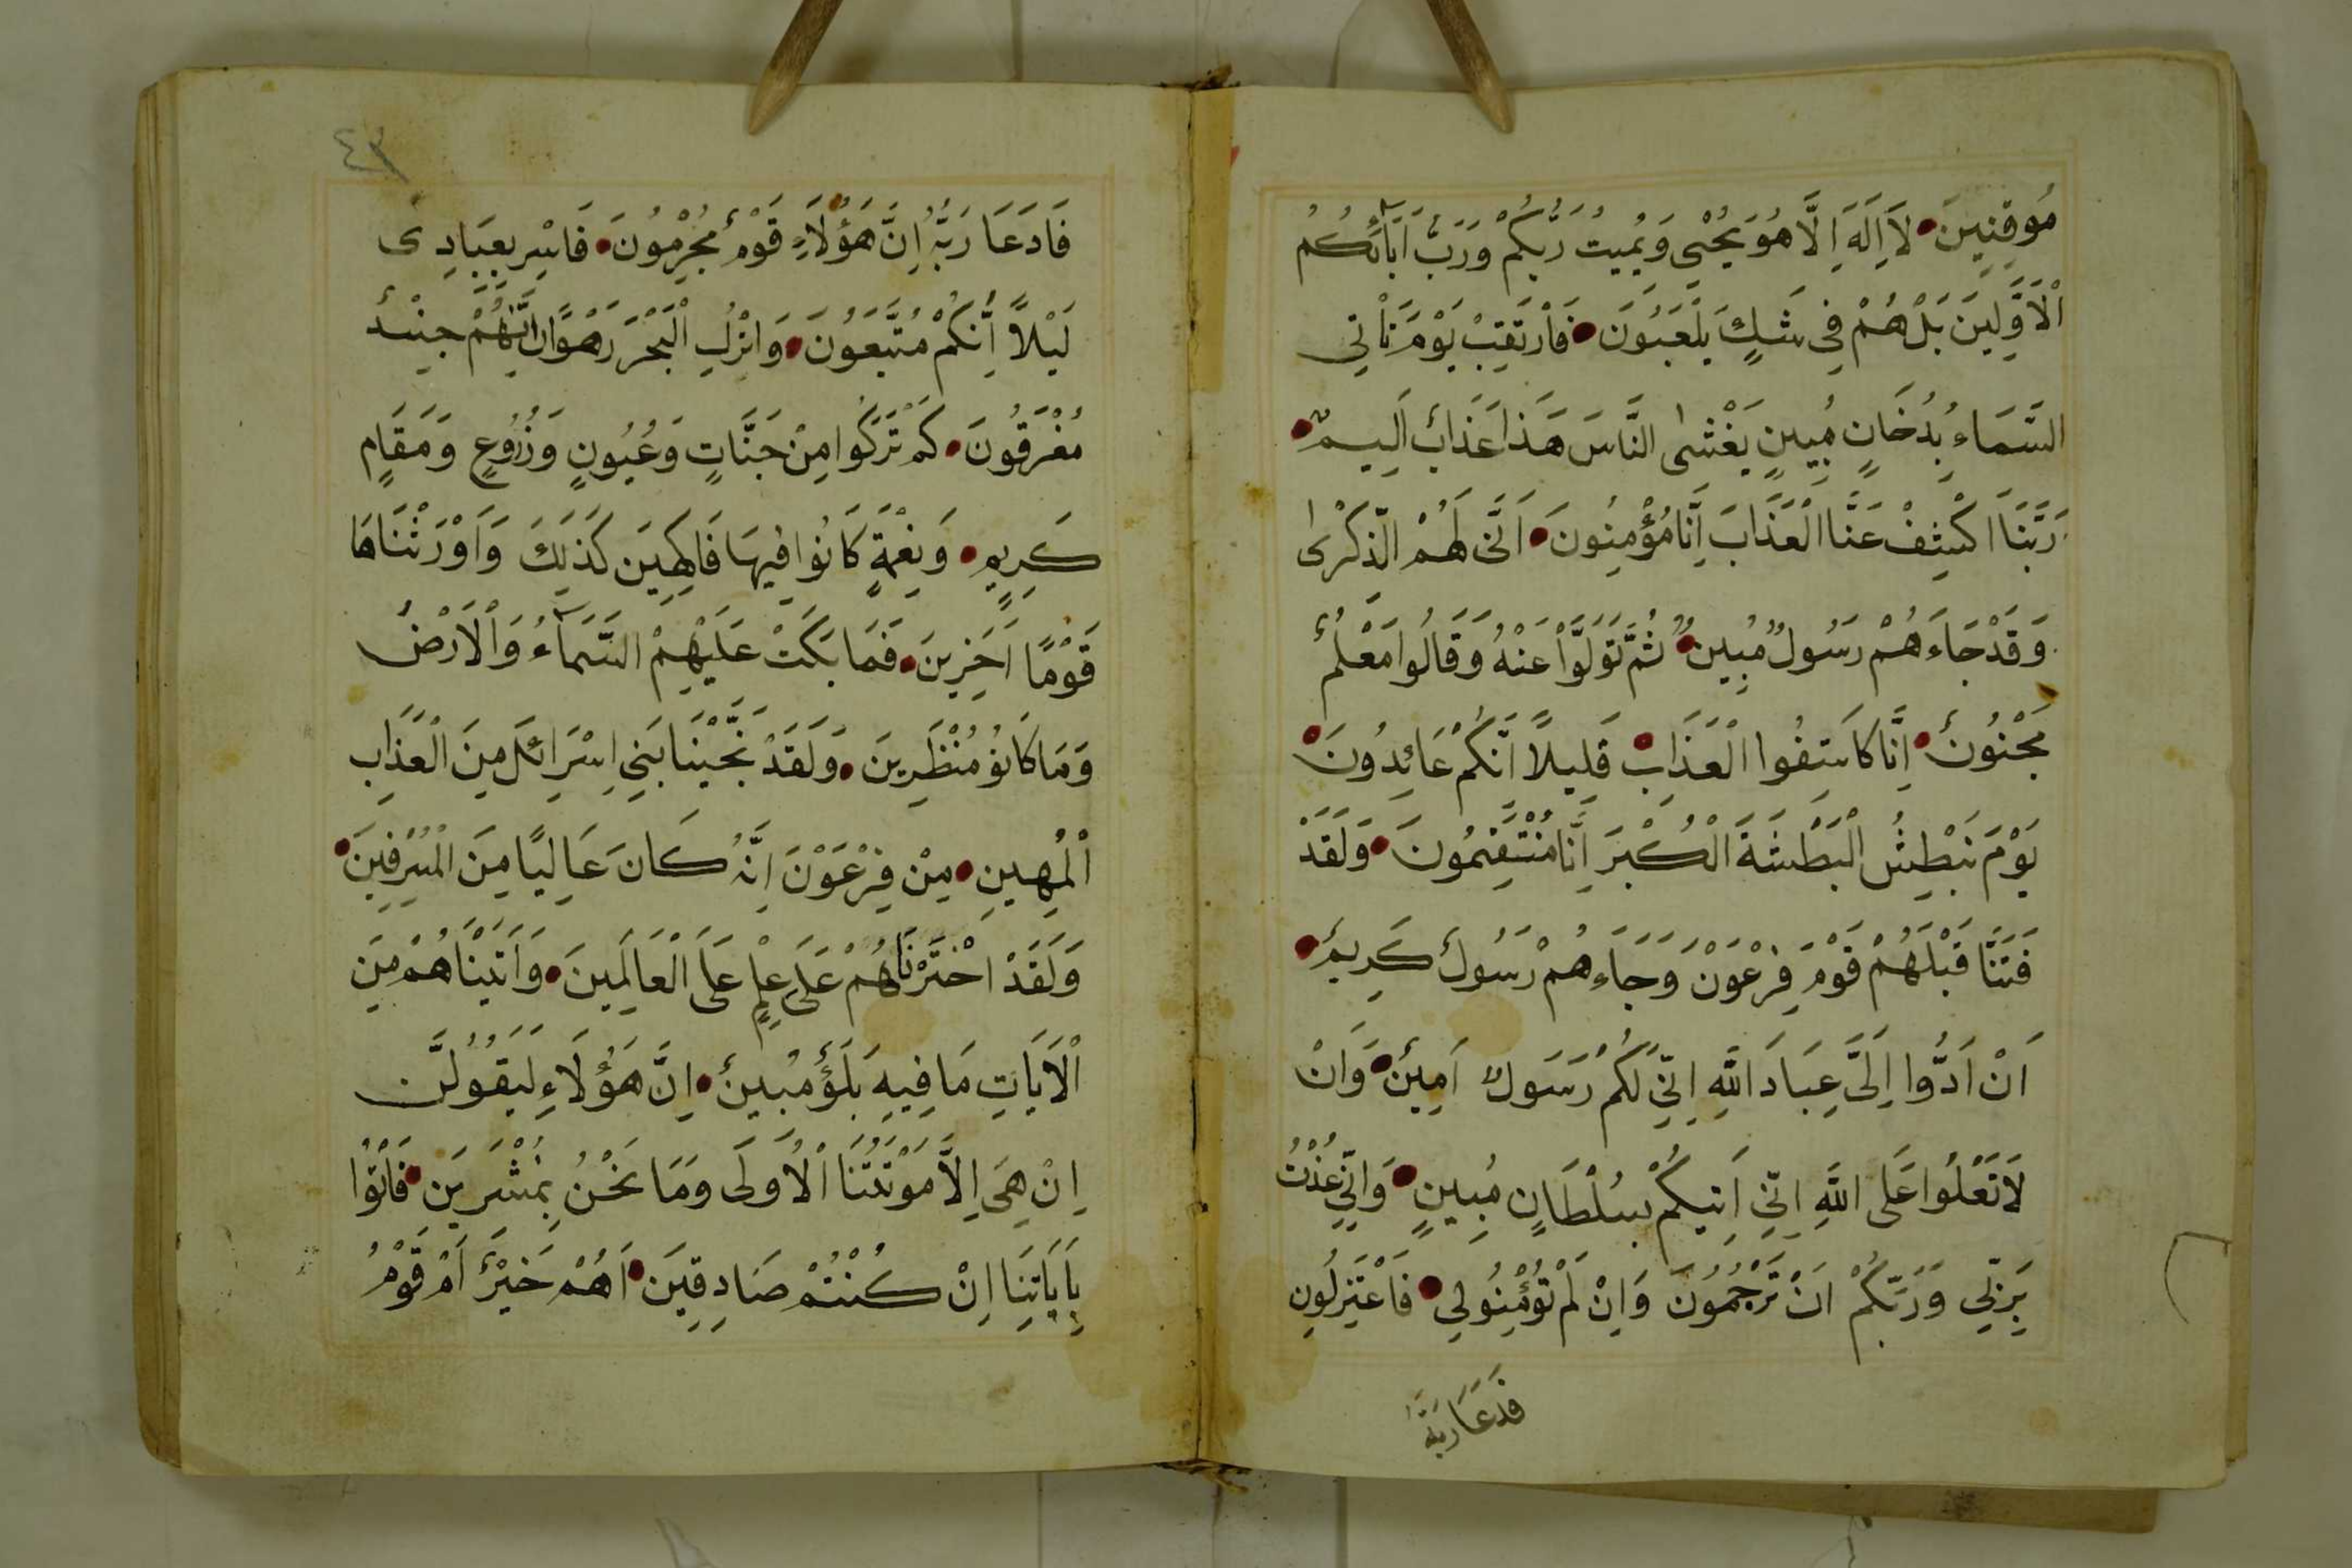 مُوقِنِينَ لَا اِلَهَ اِلَّا هُوَ يُحْيِى وَيُمِيتُ رَبُّكُمْ وَرَبُّ اَبَآئِكُمُ
اْلَاَوَّلِينَ بَلْ هُمْ فِى شَكٍّ يَلْعَبُونَ فَاْرتَقِبْ يَوْمَ تَاْتِى
السَّمَاءُ بِدُخَانٍ مُبِينٍ يَغْشٰى النَّاسَ هَذَا عَذَابٌ اَلِيمٌ
رَبَّنَا اكْشِفْ عَنَّا الْعَذَابَ اِنَّا مُؤْمِنُونَ اَنَّى لَهُمْ الذِّكْرٰى
وَقَدْ جَاءَهُمْ رَسُولٌ مُبِينٌ ثُمَّ تَوَلَّوْا عَنْهُ وَقَالُوا مَعْلَمٌ
مَجْنُونٌ اِنَّا كَاشِفُوا الْعَذَابِ قَلِيلاً اِنَّكُمْ عَائِدُونَ
يَوْمَ نَبْطِشُ الْبَطْشَةَ الْكُبْرَ اِنَّا مُنْتَقِمُونَ وَلَقَدْ
فَتَنَّا قَبْلَهُمْ قَوْمَ فِرْعَوْنَ وَجَاءَهُمْ رَسُولٌ كَرِيمٌ
اَنْ اَدُّوا اِلَىَّ عِبَادَ اللَّهِ اِنِّى لَكُمْ رَسُولٌ اَمِينٌ وَاَنْ
لَا تَعْلُوا عَلَى اللَّهِ اِنِّى اَتِيكُمْ بِسُلْطَانٍ مُبِينٍ وَاِنِّى عُذْتُ
بِرَبِّى وَرَبِّكُمْ اَنْ تَرْجُمُونَ وَاِنْ لَمْ تُؤْمِنُو لِى فَاعْتَزِلُونِ
فَدَعَا رَبَّهُ
٤٣
فَادَعَا رَبَّهُ اِنَّ هَؤُلَاءِ قَوْمٌ مُجْرِمُونَ فَاسْرِ بِعِبَادِى
لَيْلاً اِنَّكُمْ مُتَّبَعُونَ وَاتْرُكِ الْبَحْرَ رَهْوًا اِنَّهُمْ جِنْدٌ
مُغْرَقُونَ كَمْ تَرَكُوا مِنْ جَنَّاتٍ وَعُيُونٍ وَزُرُوعٍ وَمَقَامٍ
كَرِيمٍ وَنِعْمَةٍ كَانُوا فِيهَا فَاكِهِينَ كَذَلِكَ وَاَوْرَثْنَاهَا
قَوْمًا اَخَرِينَ فَمَا بَكَتْ عَلَيْهِمْ السَّمَآءُ وَالْاَرْضُ
وَمَا كَانُو مُنْظَرِينَ وَلَقَدْ نَجَّيْنَا بَنِى اِسْرَائِلَ مِنَ الْعَذَابِ
الْمُهِينِ مِنْ فِرْعَوْنَ اِنَّهُ كَانَ عَالِيًا مِنَ الْمُسْرِفِينَ
وَلَقَدْ اخْتَرْنَاهُمْ عَلَى عِلْمٍ عَلَى الْعَالَمِينَ وَاَتَيْنَاهُمْ مِنَ
الْاَيَاتِ مَا فِيهِ بَلَؤٌ مُبِينٌ اِنَّ هَؤُلَاءِ لَيَقُولُنَّ
اِنْ هِىَ اِلَّا مَوْتَتُنَا الْاُولَى وَمَا نَحْنُ بِمُنْشَرِينَ فَاْتُوا
بِاَيَاتِنَا اِنْ كُنْتُمْ صَادِقِينَ اَهُمْ خَيْرٌ اَمْ قَوْمُ